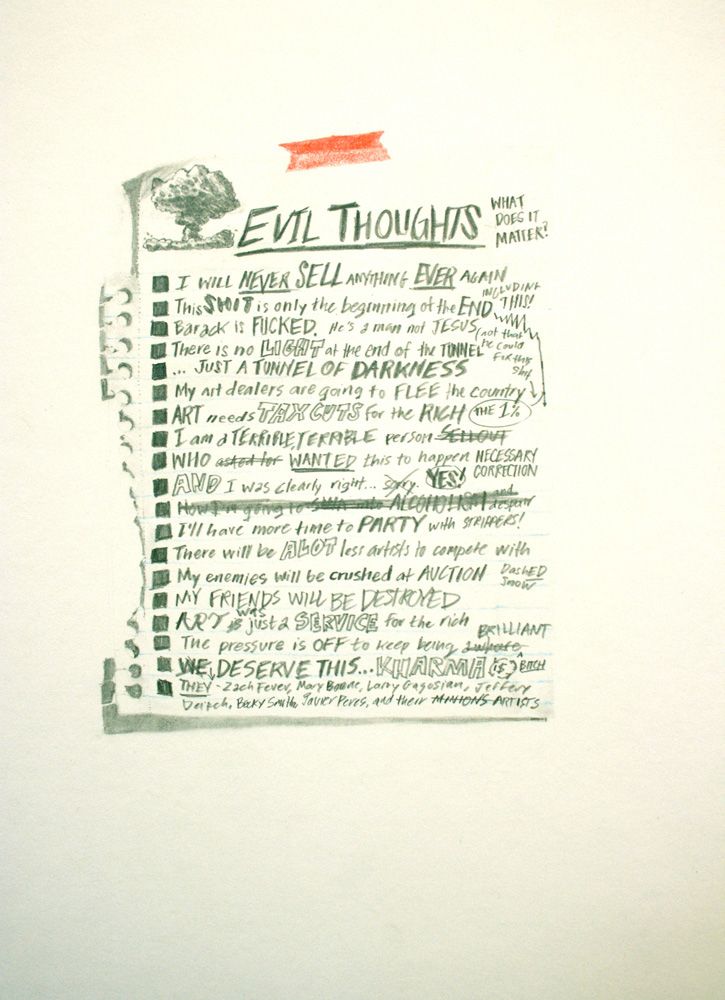 EVIL THOUGHTS
WHAT
DOES IT
MATTER?
I WILL NEVER SELL ANYTHING EVER AGAIN
INCLUDING
THIS!
This SHIT is only the beginning of the END
Barack is FUCKED. He's a man not JESUS
(not that
he could
fix this
shit
There is no LIGHT at the end of the TUNNEL
... JUST A TUNNEL OF DARKNESS
My art dealers are going to FLEE the country
ART needs TAX CUTS for the RICH THE 1%
I am a TERRIBLE, TERRIBLE person SELLOUT
WHO asked for WANTED this to happen NECESSARY
CORRECTION
AND I was clearly right... sorry. YES!
Now I'm going to into ALCOHOLISM and
despair
I'll have more time to PARTY with STRIPPERS!
There will be ALOT less artists to compete with
My enemies will be crushed at AUCTION DasHED
Snow
MY FRIENDS WILL BE DESTROYED
was
ART is just a SERVICE for the rich
BRILLIANT
The pressure is OFF to keep being a whore
WE, DESERVE THIS... KHARMA (is) A BITCH
THEY - Zach Feuer, Mary Boone, Larry Gagosian, Jeffery
Deitch, Becky Smith, Javier Peres, and their MINIONS ARTISTS